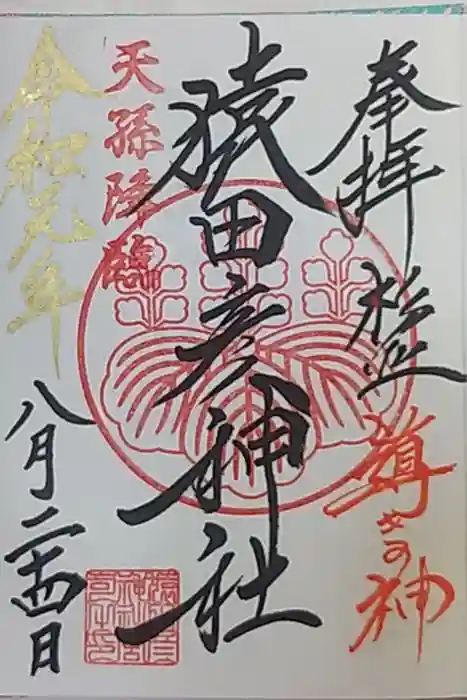 奉拝 松江
導きの神
猿田彦神社
天孫降臨
令和元年
八月二十四日